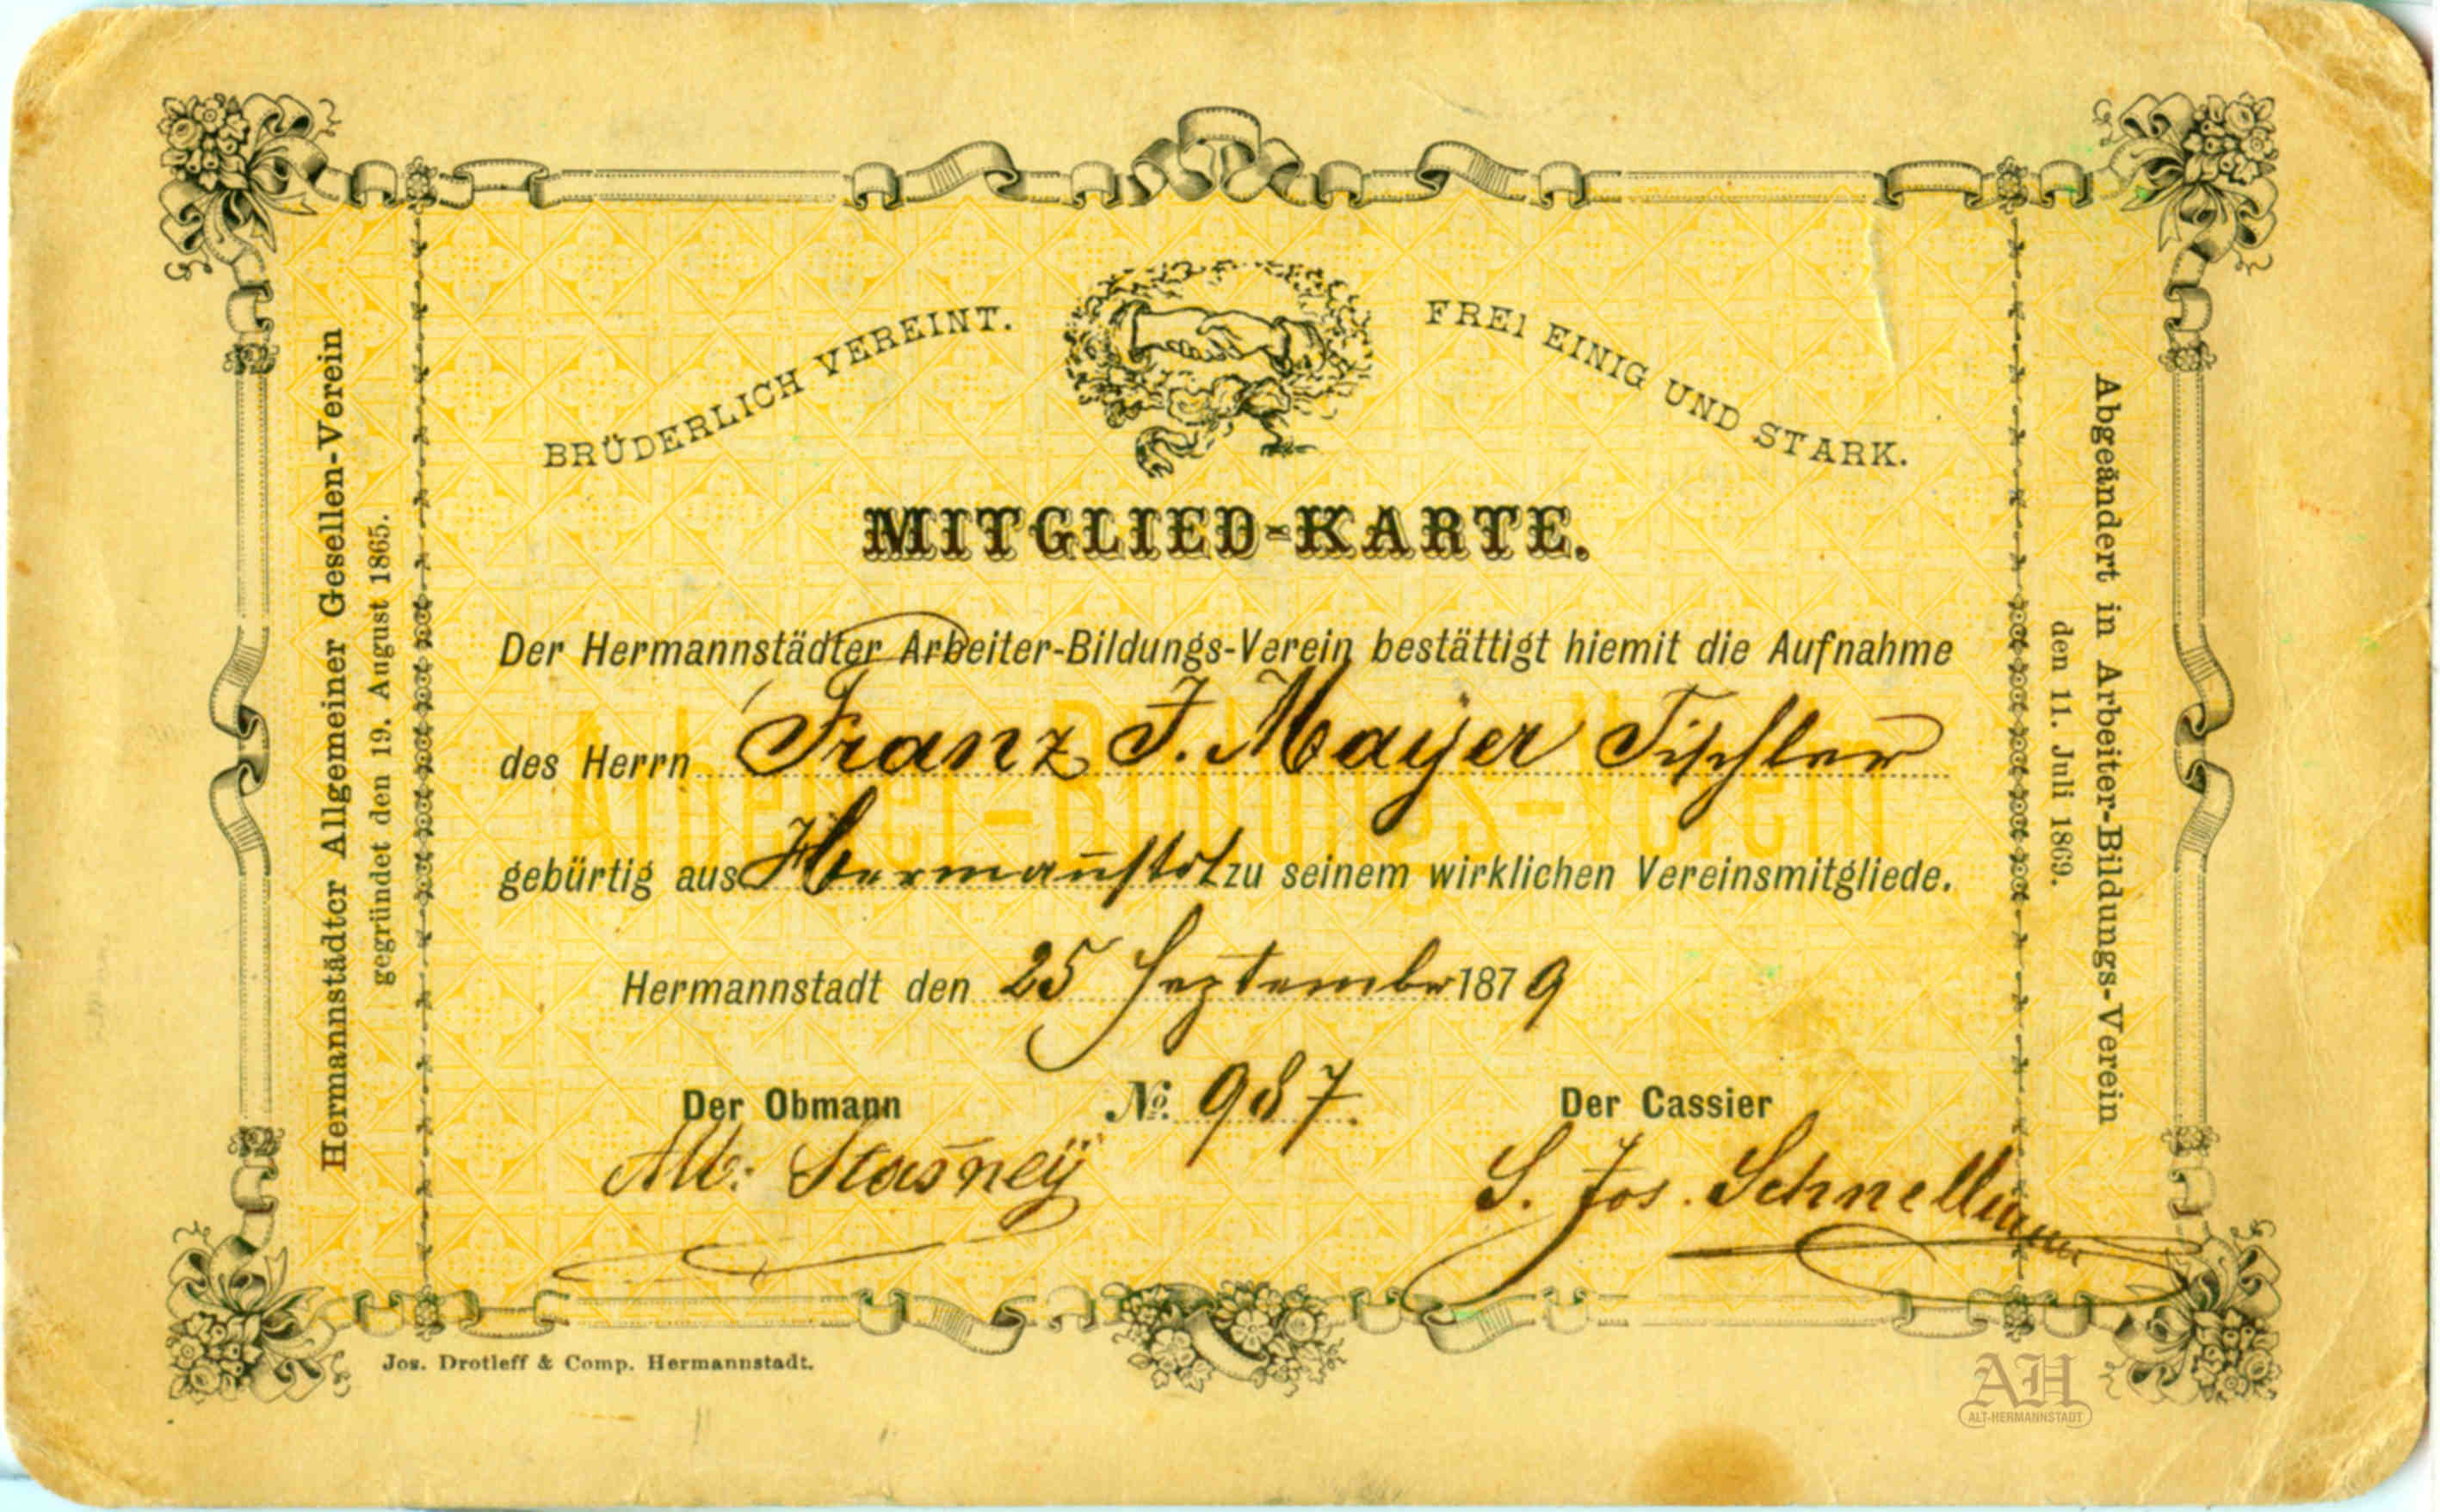 BRÜDERLICH VEREINT.
FREI EINIG UND STARK.
MITGLIED-KARTE.
Der Hermannstädter Arbeiter-Bildungs-Verein bestättigt hiemit die Aufnahme
des Herrn Franz J. Mayer Tischler
gebürtig aus Hermañstdt zu seinem wirklichen Vereinsmitgliede.
Hermannstadt den 25 September 1879
Der Obmann
№ 987.
Der Cassier
Alb: Stasney
S. Jos. Schnellmann
Hermannstädter Allgemeiner Gesellen-Verein
gegründet den 19. August 1865.
Abgeändert in Arbeiter-Bildungs-Verein
den 11. Juli 1869.
Arbeiter-Bildungs-Verein
Jos. Drotleff & Comp. Hermannstadt.
AH
ALT-HERMANNSTADT